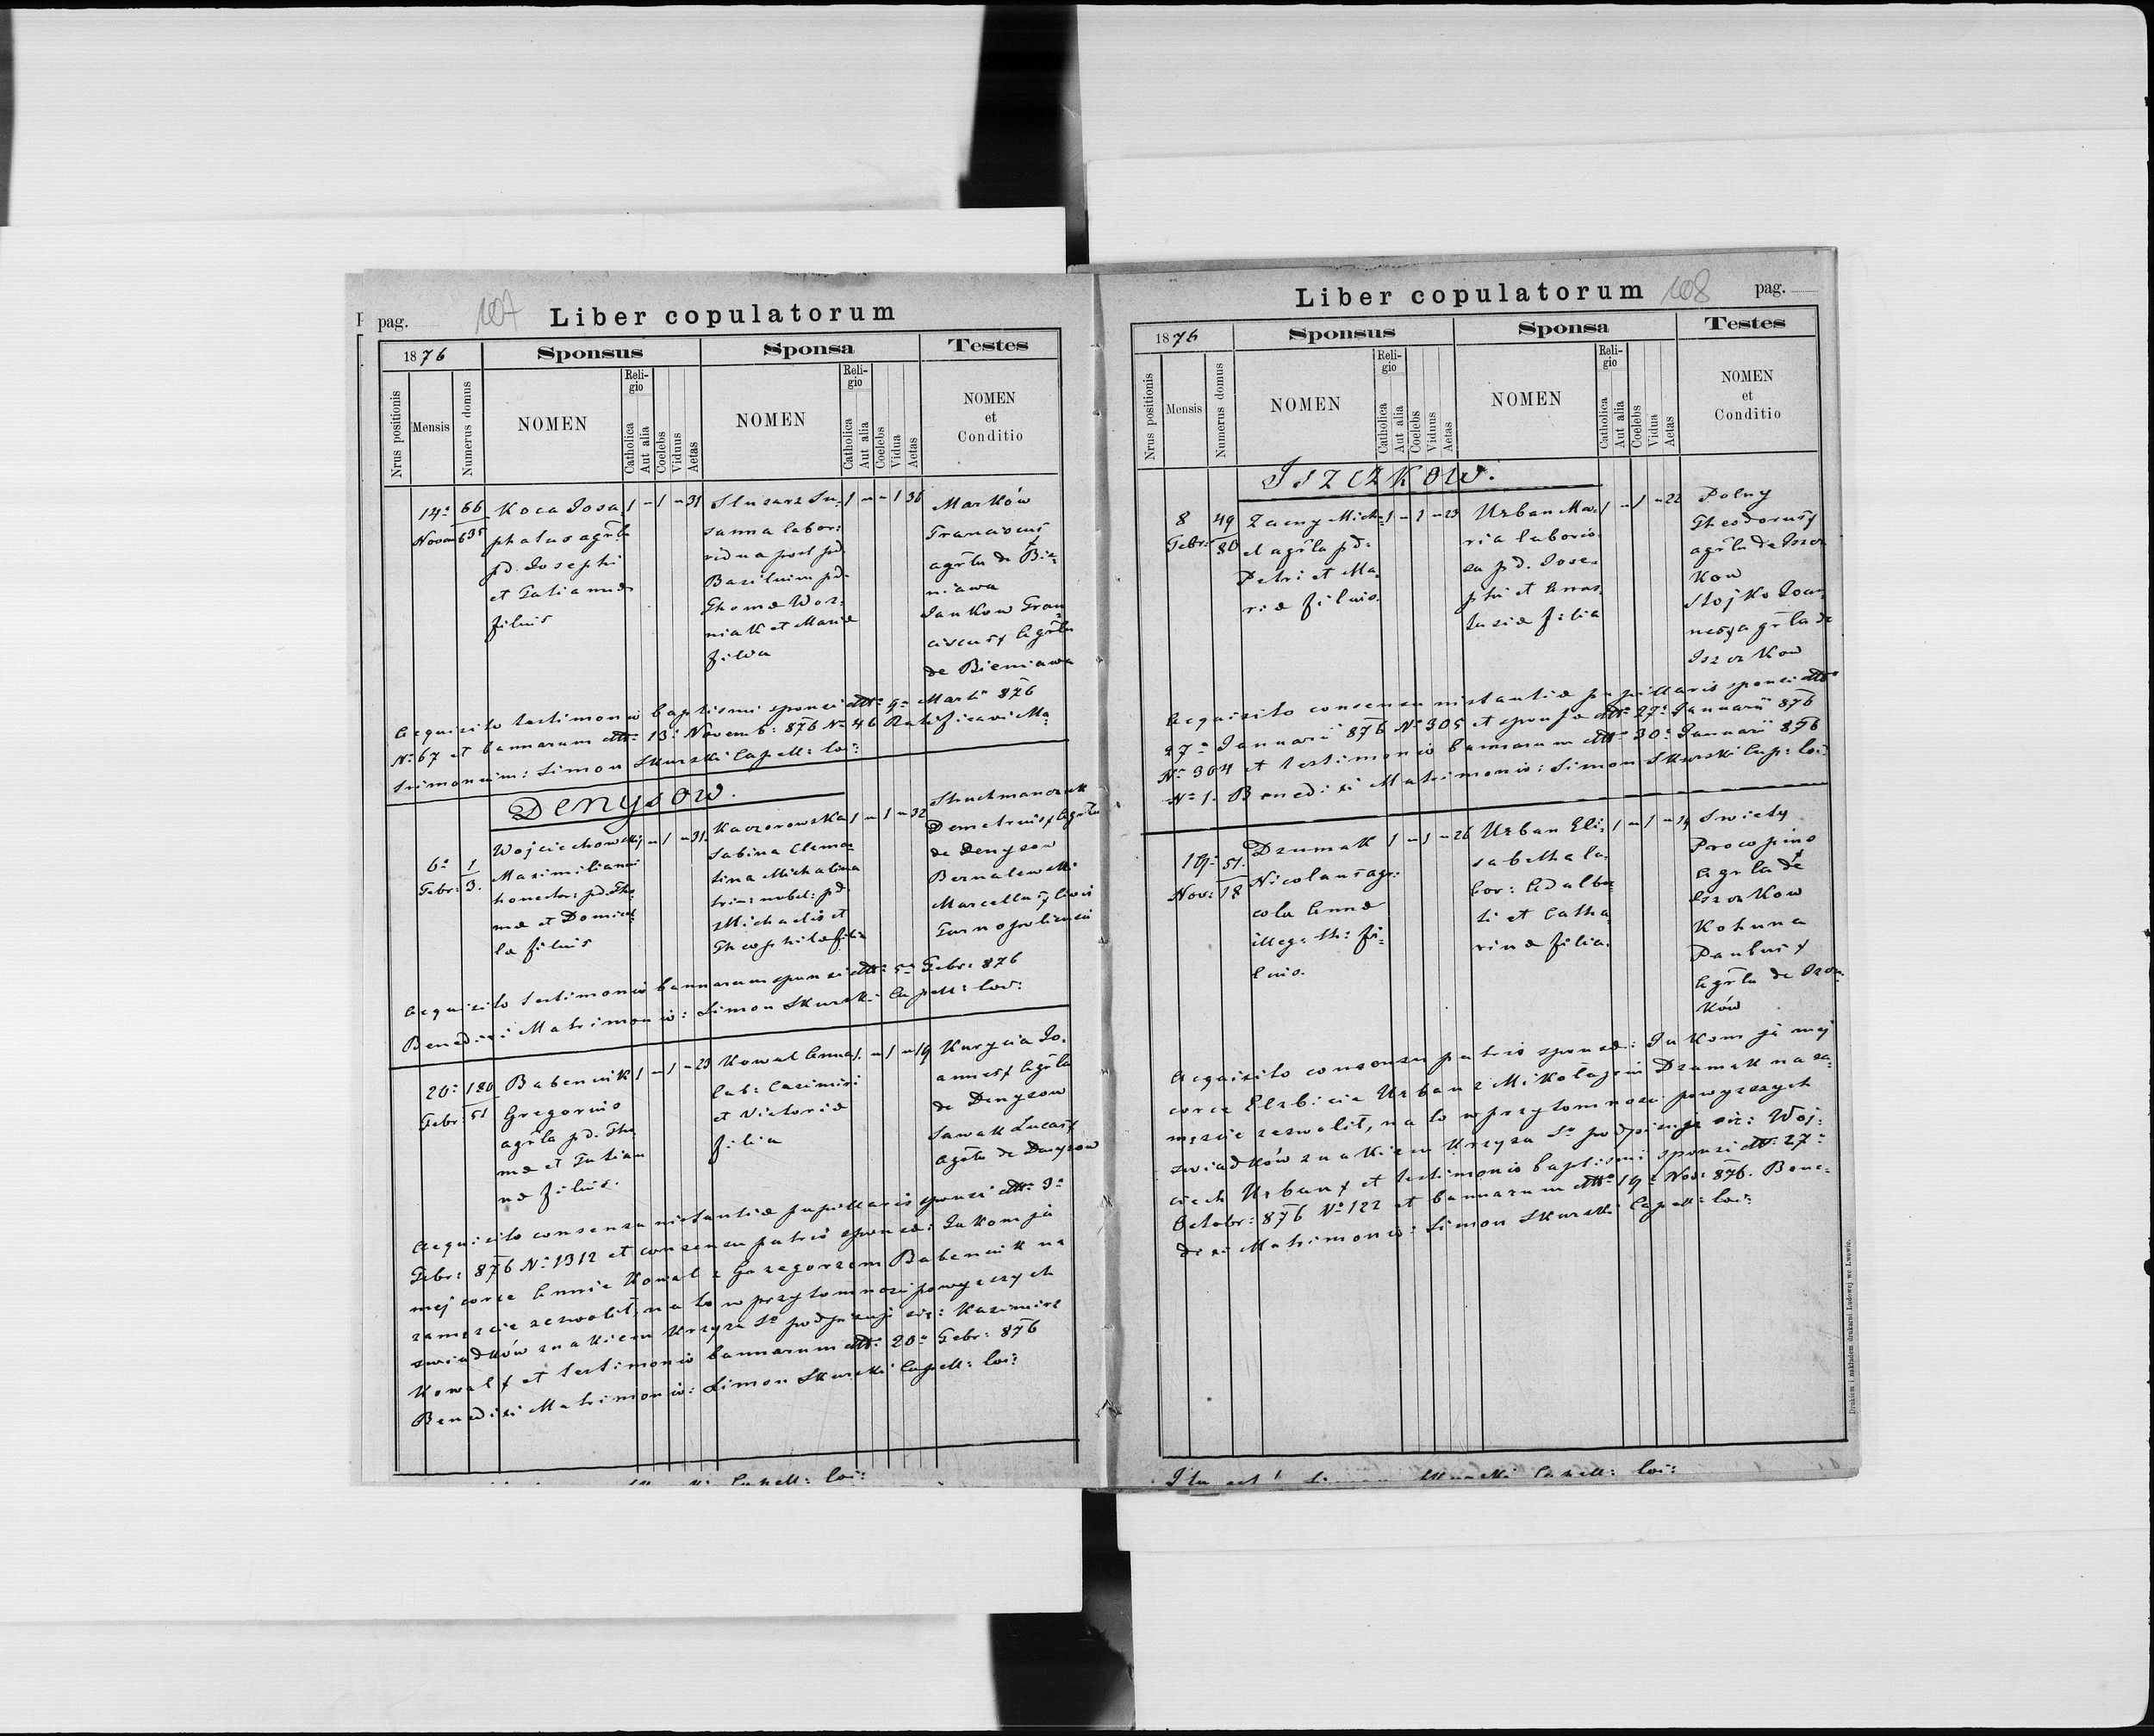 pag. 107 Liber copulatorum
1876 Sponsus Sponsa Testes
Nrus positionis Mensis Numerus domus NOMEN Religio Catholica Aut alia Coelebs Viduus Aetas NOMEN Religio Catholica Aut alia Coelebs Vidua Aetas NOMEN et Conditio
14a Novem 66 635
Koca Josa-
phatus agrla
pd. Josephi
et Tatiannae
filius
1 - 1 - 31
Slusarz Su-
sanna labor:
vidua post pd.
Basilium pd.
Thomae Woz-
niak et Mariae
filia
1 - - 1 36
Marków
Franciscus
agrla de Bie-
niawa
Jankow Fran-
ciscus x agrla
de Bieniawa
Acquisito testimonio baptismi sponsi ddto 9a Martii 876
No 67 et bannarum ddto 13a Novemb: 876 No 46 Ratificavi Ma-
trimonium: Simon Skurski Capell: loc:
Denysow.
6a Febr: 1 3.
Wojciechowski
Maximilianus
honestor: pd. Tho-
mae et Domicel-
la filius
1 - 1 - 31
Kaczorowska
Sabina Clemen-
tina Michalina
trin: nobel: pd.
Michaelis et
Theophilae filia
1 - 1 - 32
Struchmanczuk
Demetrius x agrla
de Denysow
Bernalewski
Marcellus x civis
Tarnopoliensis
Acquisito testimonio bannarum sponsi ddto 5a Febr: 876
Benedixi Matrimonio: Simon Skurski Capell: loc:
20a Febr: 180 51
Babeniuk
Gregorius
agrla pd. Tho-
mae et Tatian-
nae filius.
1 - 1 - 23
Kowal Anna
lab: Casimiri
et Victoriae
filia
1 - 1 - 19
Kurycia Jo-
annes x agrla
de Denysow
Sawak Lucas x
agrla de Denysow
Acquisito consensu instantiae pupillaris sponsi ddto 3a
Febr: 876 No 1312 et consensu patris sponsae: Jakom ja
mej corce Annie Kowal z Grzegorzem Babeniuk na
zamęzcie zezwolił, na to w przytomnosci powyzszych
swiadków znakiem krzyza So podpisuję się: Kazimirz
Kowal x et testimonio bannarum ddto 20a Febr: 876
Benedixi Matrimonio: Simon Skurski Capell: loc:
Capell: loc:
Liber copulatorum 108 pag.
1876 Sponsus Sponsa Testes
Nrus positionis Mensis Numerus domus NOMEN Religio Catholica Aut alia Coelebs Viduus Aetas NOMEN Religio Catholica Aut alia Coelebs Vidua Aetas NOMEN et Conditio
Iszczkow.
8 Febr: 49 80
Zacny Mich-
el agrla pd.
Petri et Ma-
riae filius.
1 - 1 - 23
Urban Ma-
ria laborio-
sa pd. Jose-
phi et Anas-
tasiae filia
1 - 1 - 22
Polny
Theodorus x
agrla de Iszcz-
kow
Stojko Joan-
nes x agrla de
Iszczkow
Acquisito consensu instantiae pupillaris sponsi ddto
27a Januarii 876 No 305 et sponsae ddto 27a Januarii 876
No 304 et testimonio bannarum ddto 30a Januarii 876
No 1. Benedixi Matrimonio: Simon Skurski Cap: loc:
19a Nov: 51. 18
Dzumak
Nicolaus agri-
cola Annae
illeg: th: fi-
lius.
1 - 1 - 26
Urban Eli-
sabetha la-
bor: Adalber-
ti et Catha-
rinae filia.
1 - 1 - 19
Swiety
Procopius
agrla de
Iszczkow
Kohuna
Paulus x
agrla de Iszcz-
ków
Acquisito consensu patris sponsae: Jakom ja mej
corce Elzbicie Urban z Mikołajem Dzumak na za-
męzcie zezwolił, na to w przytomnosci powyzszych
swiadków znakiem krzyza So podpisuję się: Woj-
ciech Urban x et testimonio baptismi sponsi ddto 27a
Octobr: 876 No 122 et bannarum ddto 19a Nov: 876. Bene-
dixi Matrimonio: Simon Skurski Capell: loc:
Ita est! Simon Skurski Capell: loc:
Drukiem i nakładem drukarni Ludowej we Lwowie.